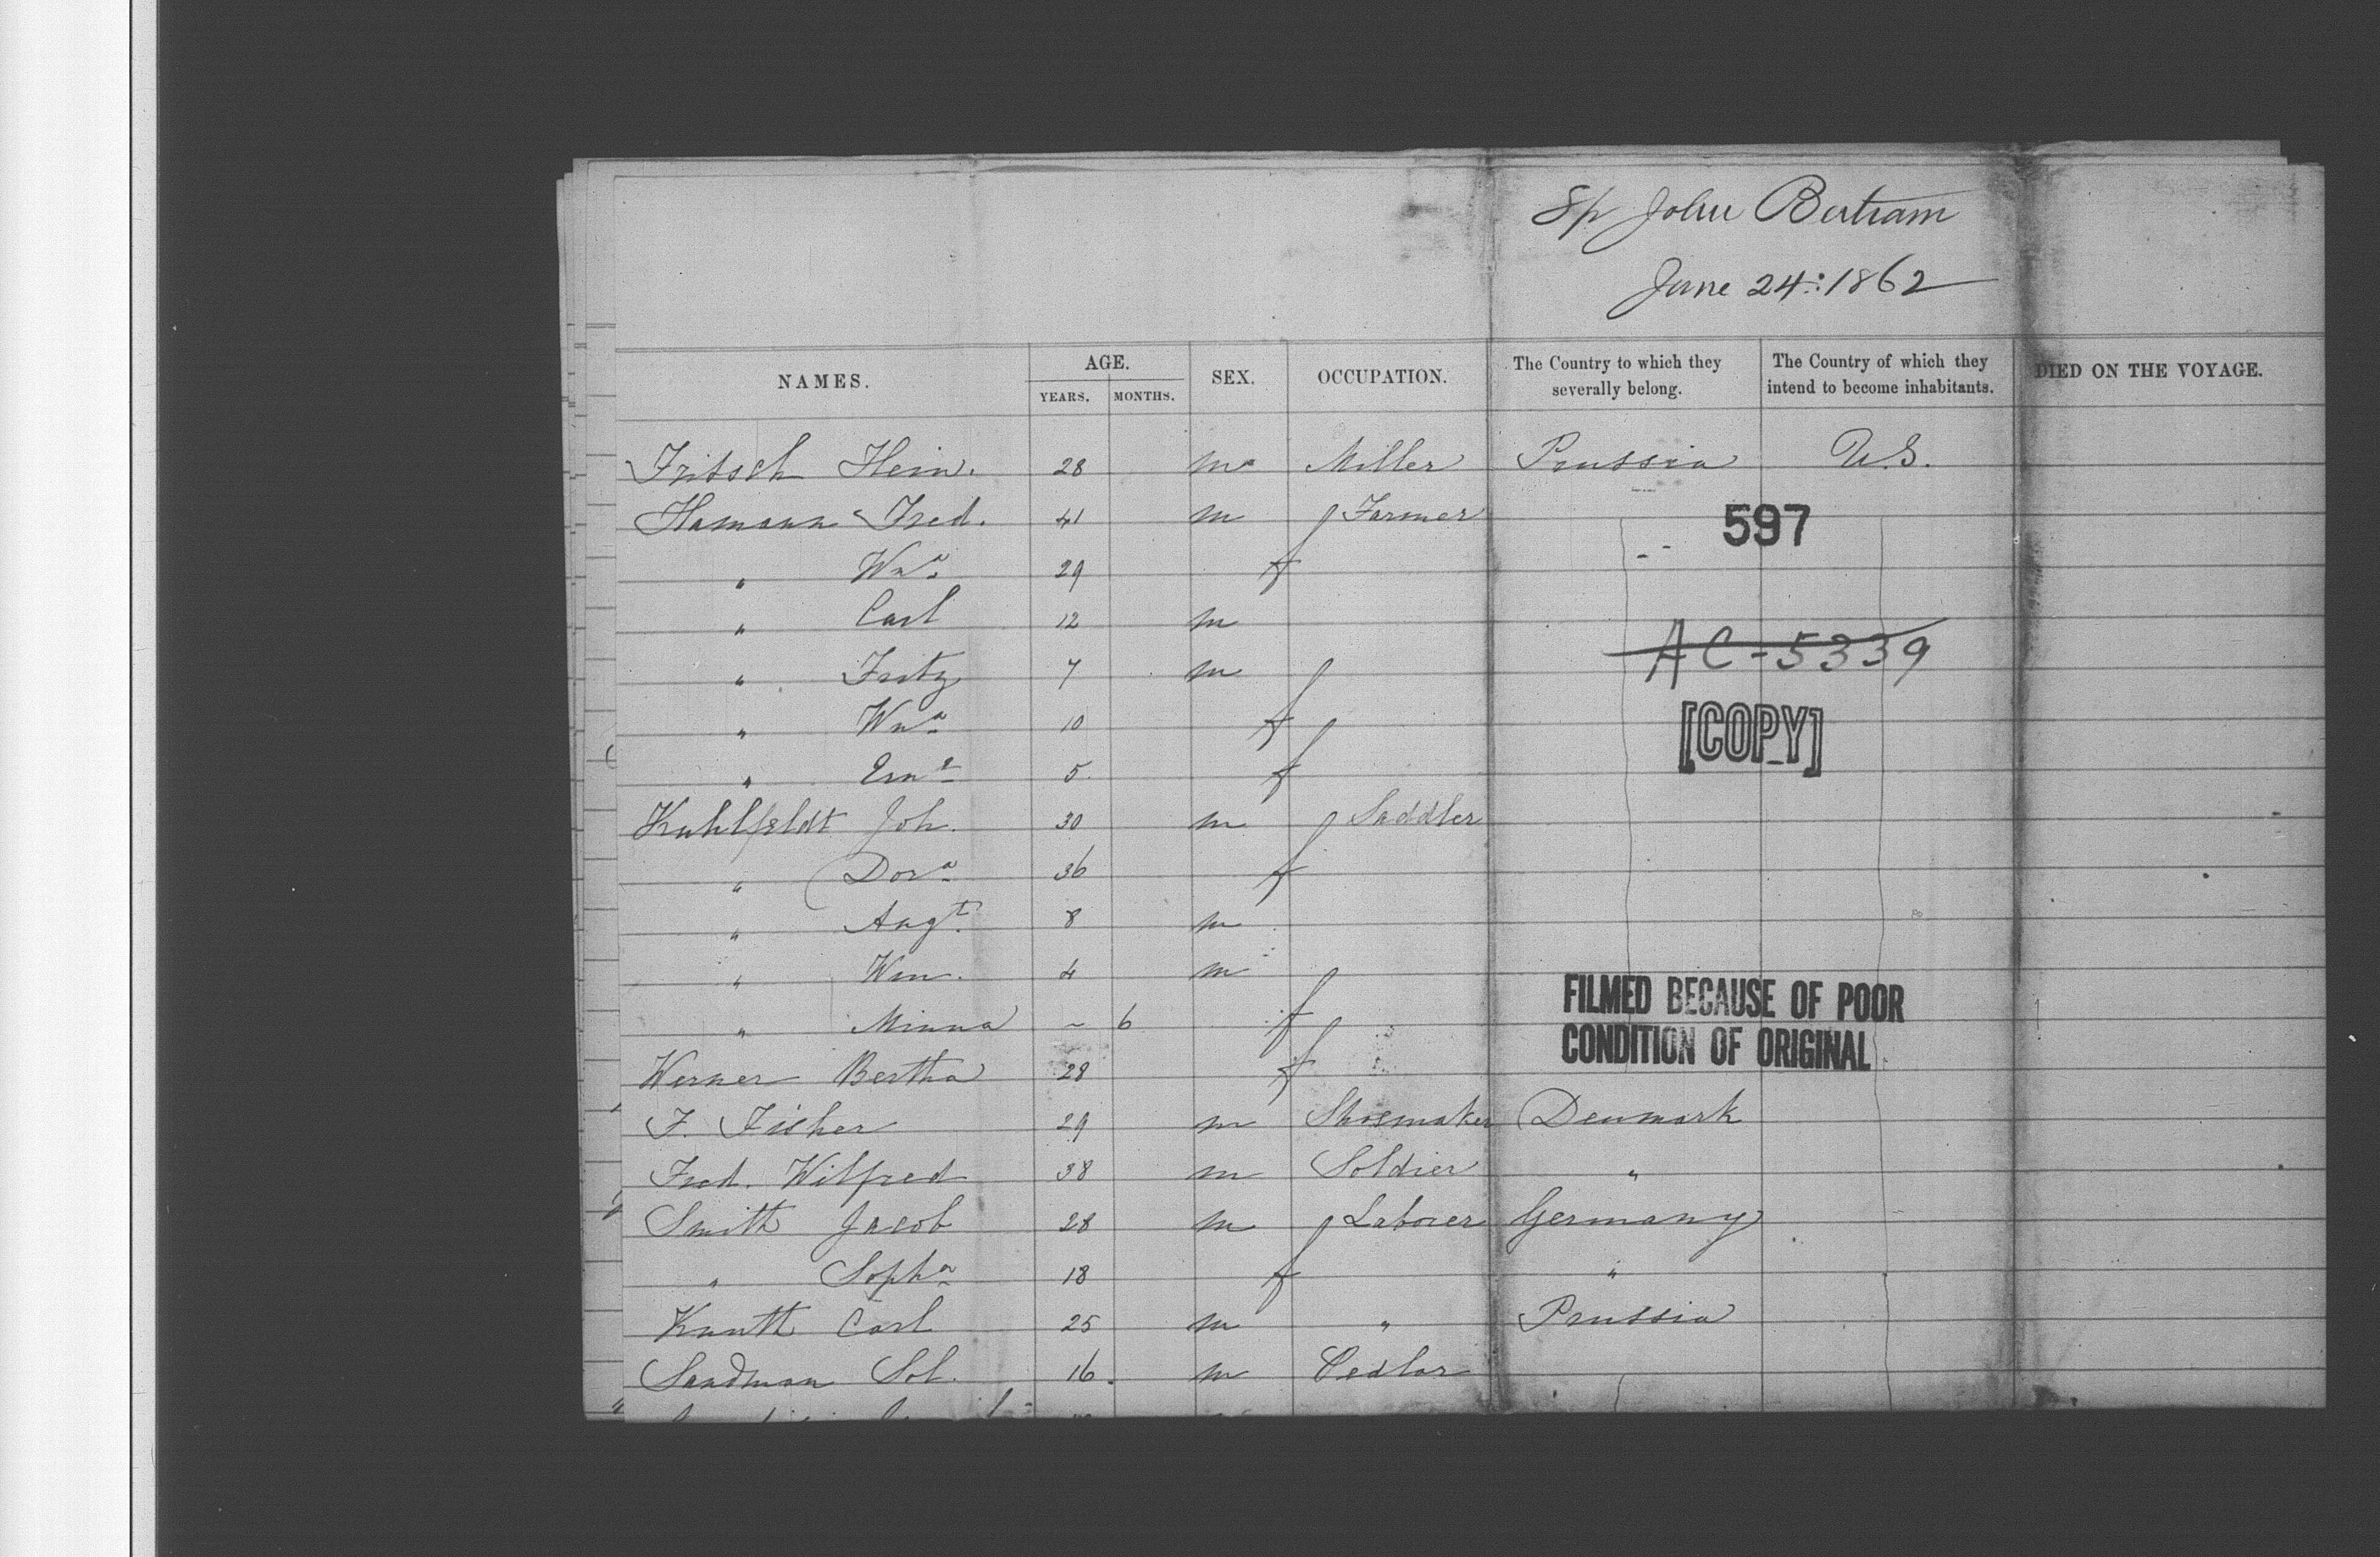 Sp John Bertram
June 24: 1862
NAMES. AGE. YEARS. MONTHS. SEX. OCCUPATION. The Country to which they severally belong. The Country of which they intend to become inhabitants. DIED ON THE VOYAGE.
Fritsch Hein. 28 m Miller Prussia U.S.
Hamann Fred. 41 m Farmer
597
" Wma 29 f
" Carl 12 m
AC-5339
" Fritz 7 m
" Wma 10 f
[COPY]
" Erne 5 f
Kuhlfeldt Joh. 30 m Saddler
" Dora 36 f
" Augt. 8 m
" Wm. 4 m
FILMED BECAUSE OF POOR
CONDITION OF ORIGINAL
" Minna ~ 6 f
Werner Bertha 28 f
F. Fisher 29 m Shoemaker Denmark
Fred. Wilfred 38 m Soldier "
Smith Jacob 28 m Laborer Germany
" Sopha 18 f "
Knuth Carl 25 m " Prussia
Sandman Sol. 16. m Pedlar